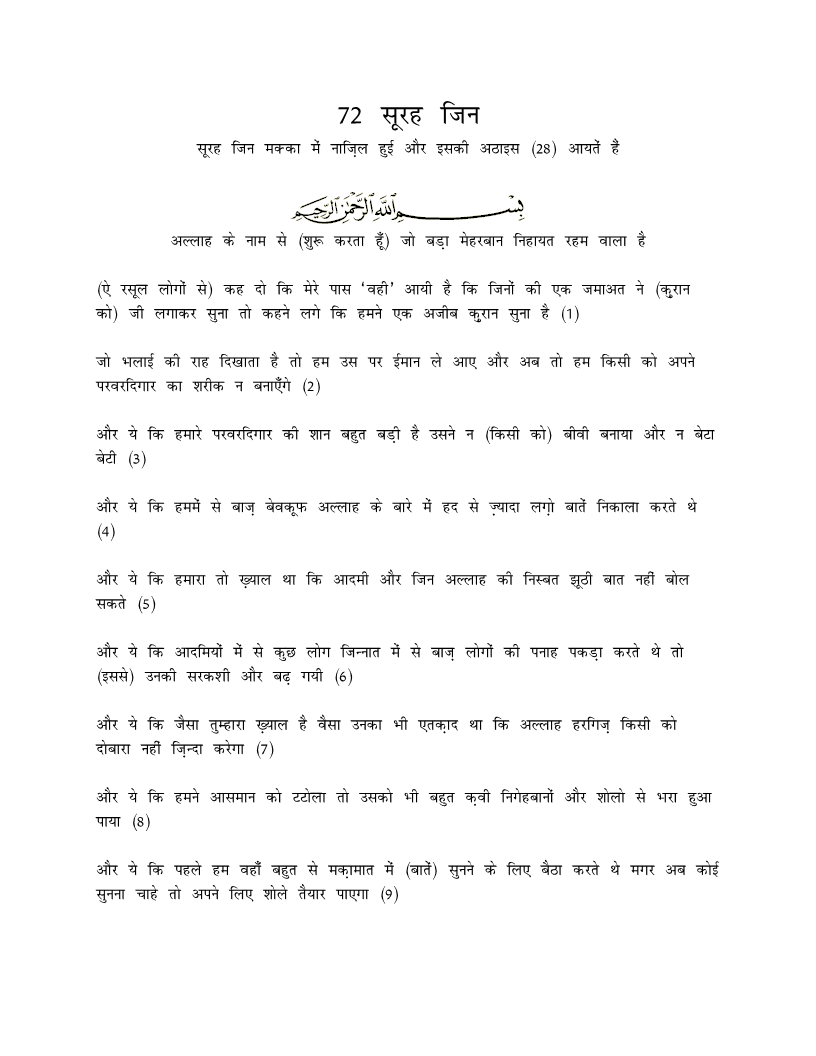 72 सूरह जिन
सूरह जिन मक्का में नाज़िल हुई और इसकी अठाइस (28) आयतें हैं
بِسْمِ اللَّهِ الرَّحْمَٰنِ الرَّحِيمِ
अल्लाह के नाम से (शुरू करता हूँ) जो बड़ा मेहरबान निहायत रहम वाला है
(ऐ रसूल लोगों से) कह दो कि मेरे पास ‘वही’ आयी है कि जिनों की एक जमाअत ने (क़ुरान
को) जी लगाकर सुना तो कहने लगे कि हमने एक अजीब क़ुरान सुना है (1)
जो भलाई की राह दिखाता है तो हम उस पर ईमान ले आए और अब तो हम किसी को अपने
परवरदिगार का शरीक न बनाएँगे (2)
और ये कि हमारे परवरदिगार की शान बहुत बड़ी है उसने न (किसी को) बीवी बनाया और न बेटा
बेटी (3)
और ये कि हममें से बाज़ बेवकूफ अल्लाह के बारे में हद से ज़्यादा लग़ो बातें निकाला करते थे
(4)
और ये कि हमारा तो ख़्याल था कि आदमी और जिन अल्लाह की निस्बत झूठी बात नहीं बोल
सकते (5)
और ये कि आदमियों में से कुछ लोग जिन्नात में से बाज़ लोगों की पनाह पकड़ा करते थे तो
(इससे) उनकी सरकशी और बढ़ गयी (6)
और ये कि जैसा तुम्हारा ख़्याल है वैसा उनका भी एतक़ाद था कि अल्लाह हरगिज़ किसी को
दोबारा नहीं ज़िन्दा करेगा (7)
और ये कि हमने आसमान को टटोला तो उसको भी बहुत क़वी निगेहबानों और शोलो से भरा हुआ
पाया (8)
और ये कि पहले हम वहाँ बहुत से मक़ामात में (बातें) सुनने के लिए बैठा करते थे मगर अब कोई
सुनना चाहे तो अपने लिए शोले तैयार पाएगा (9)